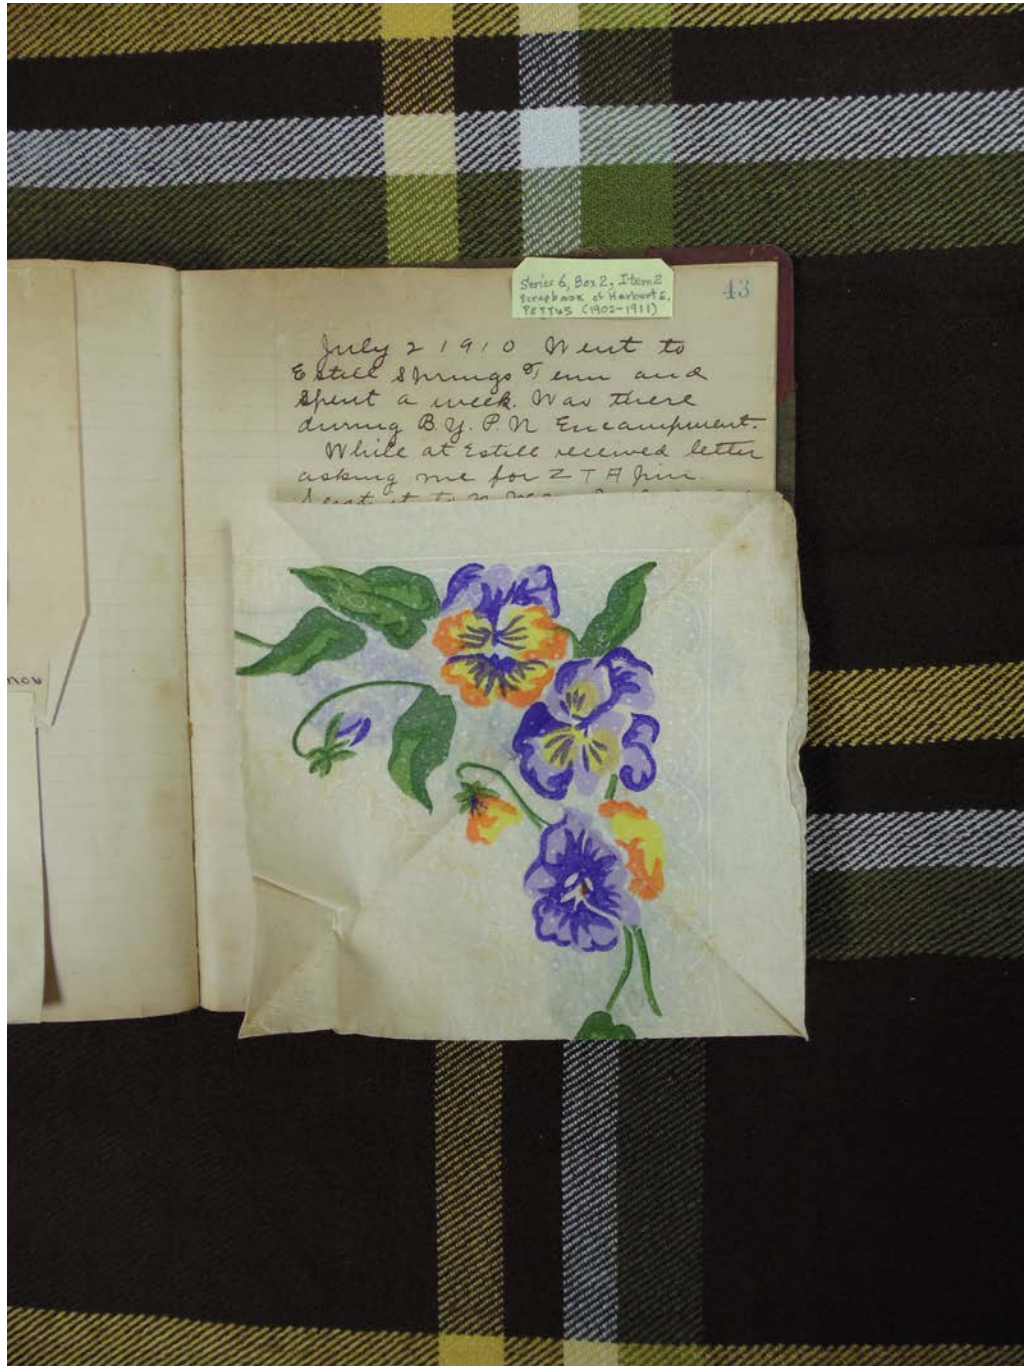 43
Series 6, Box 2, Item 2
Scrapbook of Herbert E.
PETTUS (1902-1911)
July 2 1910 Went to
Estill Springs Tenn and
Spent a week. Was there
during B.Y.P.U Encampment.
While at Estill received letter
asking me for Z T A pin.
nov